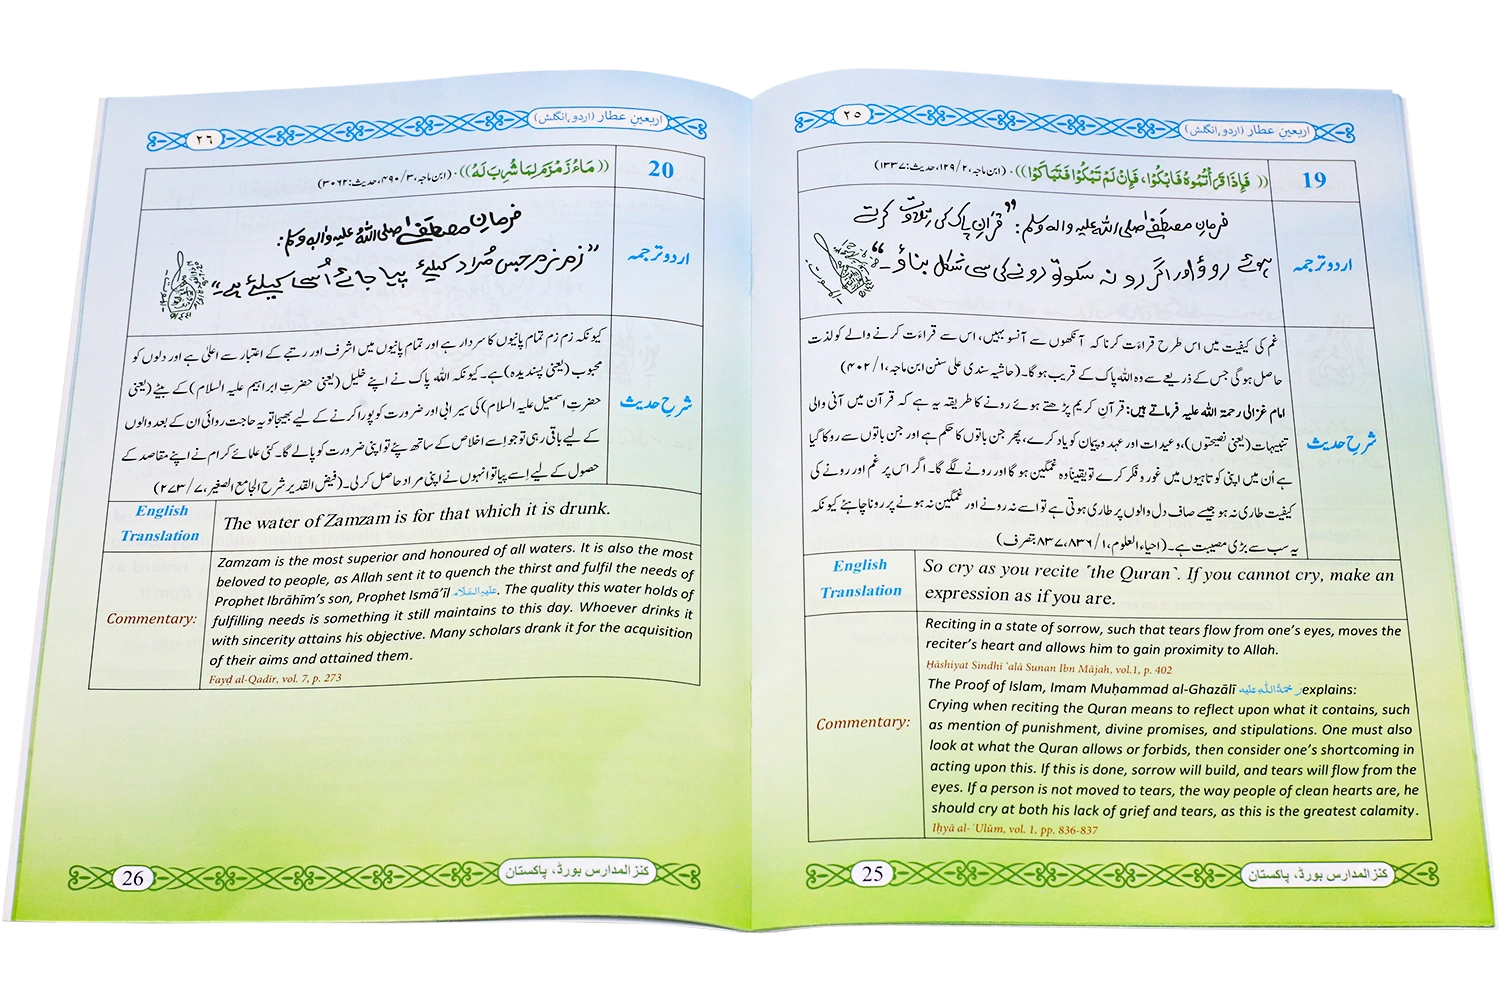 اربعینِ عطار (اردو، انگلش)
٢٥
19
((فَإِذَا قَرَأْتُمُوهُ فَابْكُوا، فَإِنْ لَمْ تَبْكُوا فَتَبَاكَوْا))۔ (ابن ماجہ، ۲/ ۱۲۹، حدیث: ۱۳۳۷)
اردو ترجمہ
فرمانِ مصطفےٰ صلی اللہ علیہ والہ وسلم: "قرآنِ پاک کی تلاوت کرتے
ہوئے روؤ اور اگر رو نہ سکو تو رونے کی سی شکل بناؤ۔"
شرحِ حدیث
غم کی کیفیت میں اس طرح قراءت کرنا کہ آنکھوں سے آنسو بہیں، اس سے قراءت کرنے والے کو لذت
حاصل ہوگی جس کے ذریعے سے وہ اللہ پاک کے قریب ہوگا۔ (حاشیہ سندی علی سنن ابن ماجہ، ۱/ ۴۰۲)
امام غزالی رحمۃ اللہ علیہ فرماتے ہیں: قرآنِ کریم پڑھتے ہوئے رونے کا طریقہ یہ ہے کہ قرآن میں آنی والی
تنبیہات (یعنی نصیحتوں)، وعیدات اور عہد و پیمان کو یاد کرے، پھر جن باتوں کا حکم ہے اور جن باتوں سے روکا گیا
ہے اُن میں اپنی کوتاہیوں میں غور و فکر کرے تو یقیناً وہ غمگین ہوگا اور رونے لگے گا۔ اگر اس پر غم اور رونے کی
کیفیت طاری نہ ہو جیسے صاف دل والوں پر طاری ہوتی ہے تو اسے نہ رونے اور غمگین نہ ہونے پر رونا چاہئے کیونکہ
یہ سب سے بڑی مصیبت ہے۔ (احیاء العلوم، ۱/ ۸۳۶، ۸۳۷ بتصرف)
English
Translation
So cry as you recite ˹the Quran˺. If you cannot cry, make an
expression as if you are.
Commentary:
Reciting in a state of sorrow, such that tears flow from one's eyes, moves the
reciter's heart and allows him to gain proximity to Allah.
Ḥāshiyat Sindhī ʿalā Sunan Ibn Mājah, vol.1, p. 402
The Proof of Islam, Imam Muḥammad al-Ghazālī رَحْمَةُ اللّٰهِ عَلَيْه explains:
Crying when reciting the Quran means to reflect upon what it contains, such
as mention of punishment, divine promises, and stipulations. One must also
look at what the Quran allows or forbids, then consider one's shortcoming in
acting upon this. If this is done, sorrow will build, and tears will flow from the
eyes. If a person is not moved to tears, the way people of clean hearts are, he
should cry at both his lack of grief and tears, as this is the greatest calamity.
Iḥyā al-ʿUlūm, vol. 1, pp. 836-837
25
کنز المدارس بورڈ، پاکستان
اربعینِ عطار (اردو، انگلش)
٢٦
20
((مَاءُ زَمْزَمَ لِمَا شُرِبَ لَهُ))۔ (ابن ماجہ، ۳/ ۴۹۰، حدیث: ۳۰۶۲)
اردو ترجمہ
فرمانِ مصطفےٰ صلی اللہ علیہ والہ وسلم:
"زم زم جس مُراد کیلئے پیا جائے اُسی کیلئے ہے۔"
شرحِ حدیث
کیونکہ زم زم تمام پانیوں کا سردار ہے اور تمام پانیوں میں اشرف اور رتبے کے اعتبار سے اعلیٰ ہے اور دلوں کو
محبوب (یعنی پسندیدہ) ہے۔ کیونکہ اللہ پاک نے اپنے خلیل (یعنی حضرتِ ابراہیم علیہ السلام) کے بیٹے (یعنی
حضرتِ اسمٰعیل علیہ السلام) کی سیرابی اور ضرورت کو پورا کرنے کے لیے بھیجا تو یہ حاجت روائی ان کے بعد والوں
کے لیے باقی رہی تو جو اِسے اخلاص کے ساتھ پئے تو اپنی ضرورت کو پالے گا۔ کئی علمائے کرام نے اپنے مقاصد کے
حصول کے لیے اِسے پیا تو انہوں نے اپنی مراد حاصل کرلی۔ (فیض القدیر شرح الجامع الصغیر، ۷/ ۲۷۳)
English
Translation
The water of Zamzam is for that which it is drunk.
Commentary:
Zamzam is the most superior and honoured of all waters. It is also the most
beloved to people, as Allah sent it to quench the thirst and fulfil the needs of
Prophet Ibrāhīm's son, Prophet Ismāʿīl عَلَيْهِ السَّلَام. The quality this water holds of
fulfilling needs is something it still maintains to this day. Whoever drinks it
with sincerity attains his objective. Many scholars drank it for the acquisition
of their aims and attained them.
Fayḍ al-Qadīr, vol. 7, p. 273
26
کنز المدارس بورڈ، پاکستان